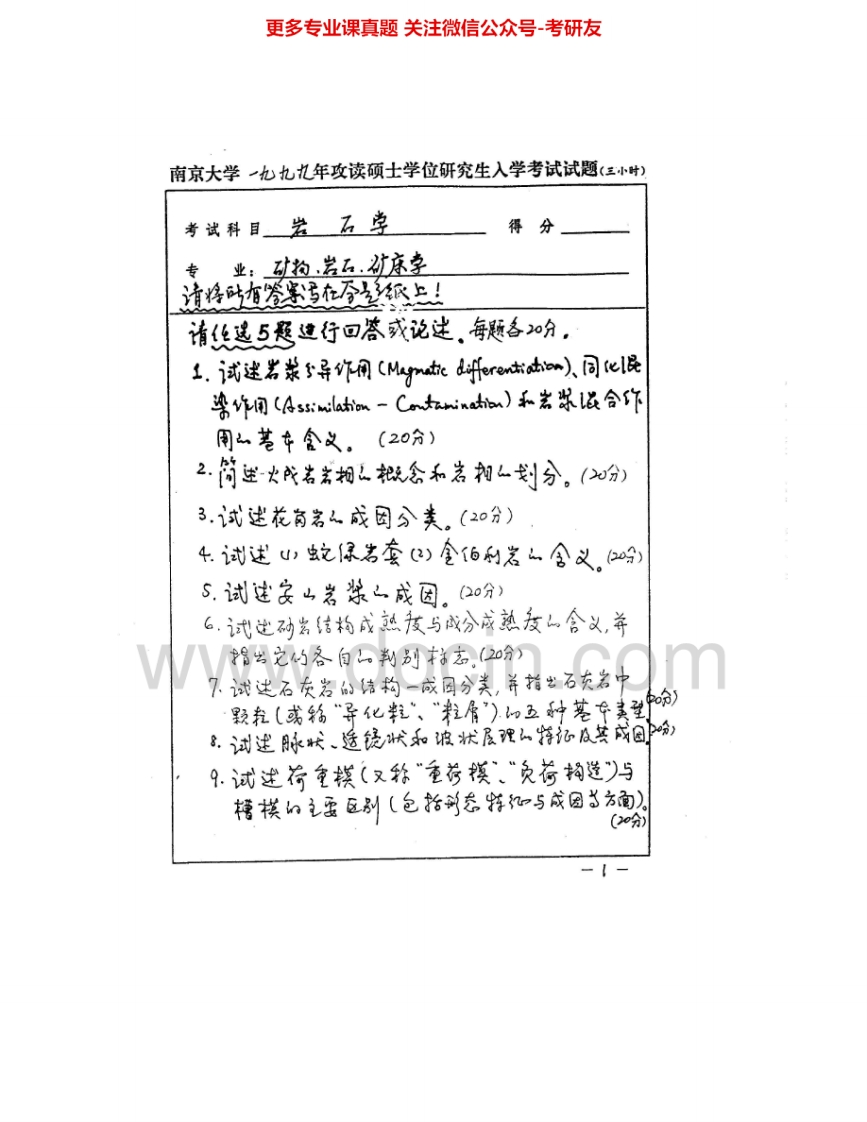 更多专业课真题 关注微信公众号-考研友
南京大学一九九九年攻读硕士学位研究生入学考试试题(三小时)
考试科目 岩石学 得分
专业: 矿物、岩石、矿床学
请将所有答案写在答题纸上!
请任选5题进行回答或论述。每题各20分。
1. 试述岩浆分异作用(Magmatic differentiation)、同化混
染作用(Assimilation - Contamination)和岩浆混合作
用的基本含义。(20分)
2. 简述火成岩岩相的概念和岩相的划分。(20分)
3. 试述花岗岩的成因分类。(20分)
4. 试述(1)蛇绿岩套(2)金伯利岩的含义。(20分)
5. 试述安山岩浆的成因。(20分)
6. 试述砂岩结构成熟度与成分成熟度的含义,并
指出它们各自的判别标志。(20分)
7. 试述石灰岩的结构—成因分类,并指出石灰岩中
颗粒(或称"异化粒"、"粒屑")的五种基本类型(20分)
8. 试述脉状、透镜状和波状层理的特征及其成因。(20分)
9. 试述荷重模(又称"重荷模"、"负荷构造")与
槽模的主要区别(包括形态特征与成因等方面)。
(20分)
www.docin.com
— 1 —